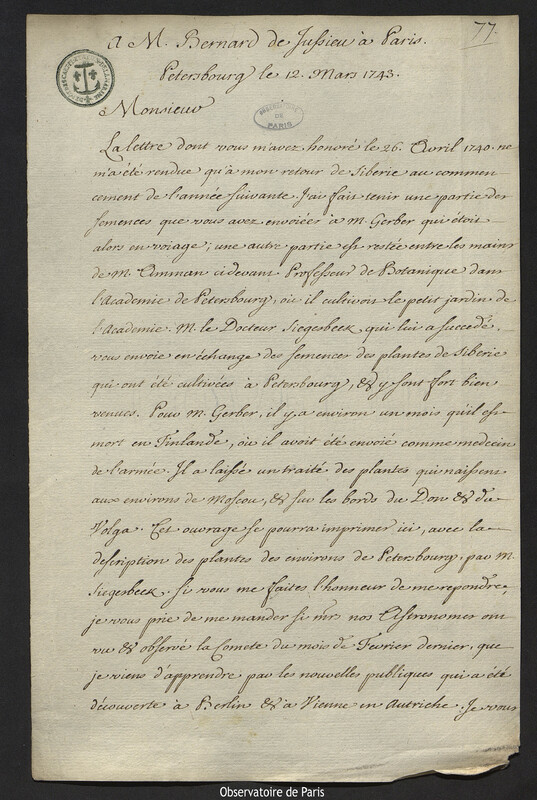 77.
A M. Bernard de Jussieu à Paris.
Petersbourg le 12. Mars 1743.
Monsieur
OBSERVATOIRE DE PARIS
La lettre dont vous m'avez honoré le 26. Avril 1740. ne
m'a été rendue qu'à mon retour de Siberie au commen-
cement de l'année suivante. J'ai fait tenir une partie des
semences que vous avez envoiées à M. Gerber qui étoit
alors en voiage; une autre partie est restée entre les mains
de M. Amman ci devant Professeur de Botanique dans
l'Academie de Petersbourg, où il cultivoit le petit jardin de
l'Academie. M. le Docteur Siegesbeck, qui lui a succedé,
vous envoie en échange des semences des plantes de Siberie
qui ont été cultivées à Petersbourg, & y sont fort bien
venues. Pour M. Gerber, il y a environ un mois qu'il est
mort en Finlande, où il avoit été envoié comme medecin
de l'armée. Il a laissé un traité des plantes qui naissent
aux environs de Moscou, & sur les bords du Don & du
Volga. Cet ouvrage se pourra imprimer ici, avec la
description des plantes des environs de Petersbourg, par M.
Siegesbeck. Si vous me faites l'honneur de me repondre,
je vous prie de me mander si mrs nos Astronomes ont
vu & observé la Comete du mois de Fevrier dernier, que
je viens d'apprendre par les nouvelles publiques qui a été
découverte à Berlin & à Vienne en Autriche. Je vous
Observatoire de Paris